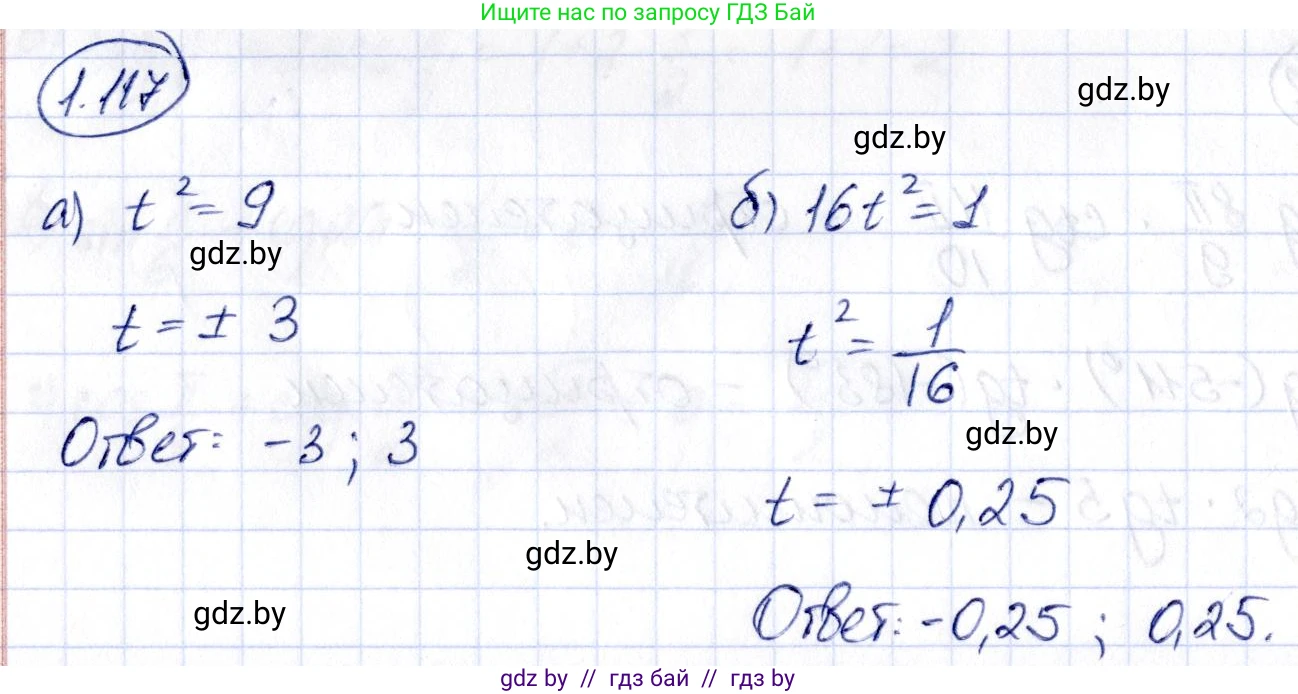 Ищите нас по запросу ГДЗ Бай
1.117
gdz.by
gdz.by
а) t² = 9
gdz.by
t = ± 3
Ответ: -3 ; 3
gdz.by
б) 16t² = 1
t² = 1/16
gdz.by
t = ± 0,25
gdz.by
Ответ: -0,25 ; 0,25.
gdz by // гдз бай // гдз by